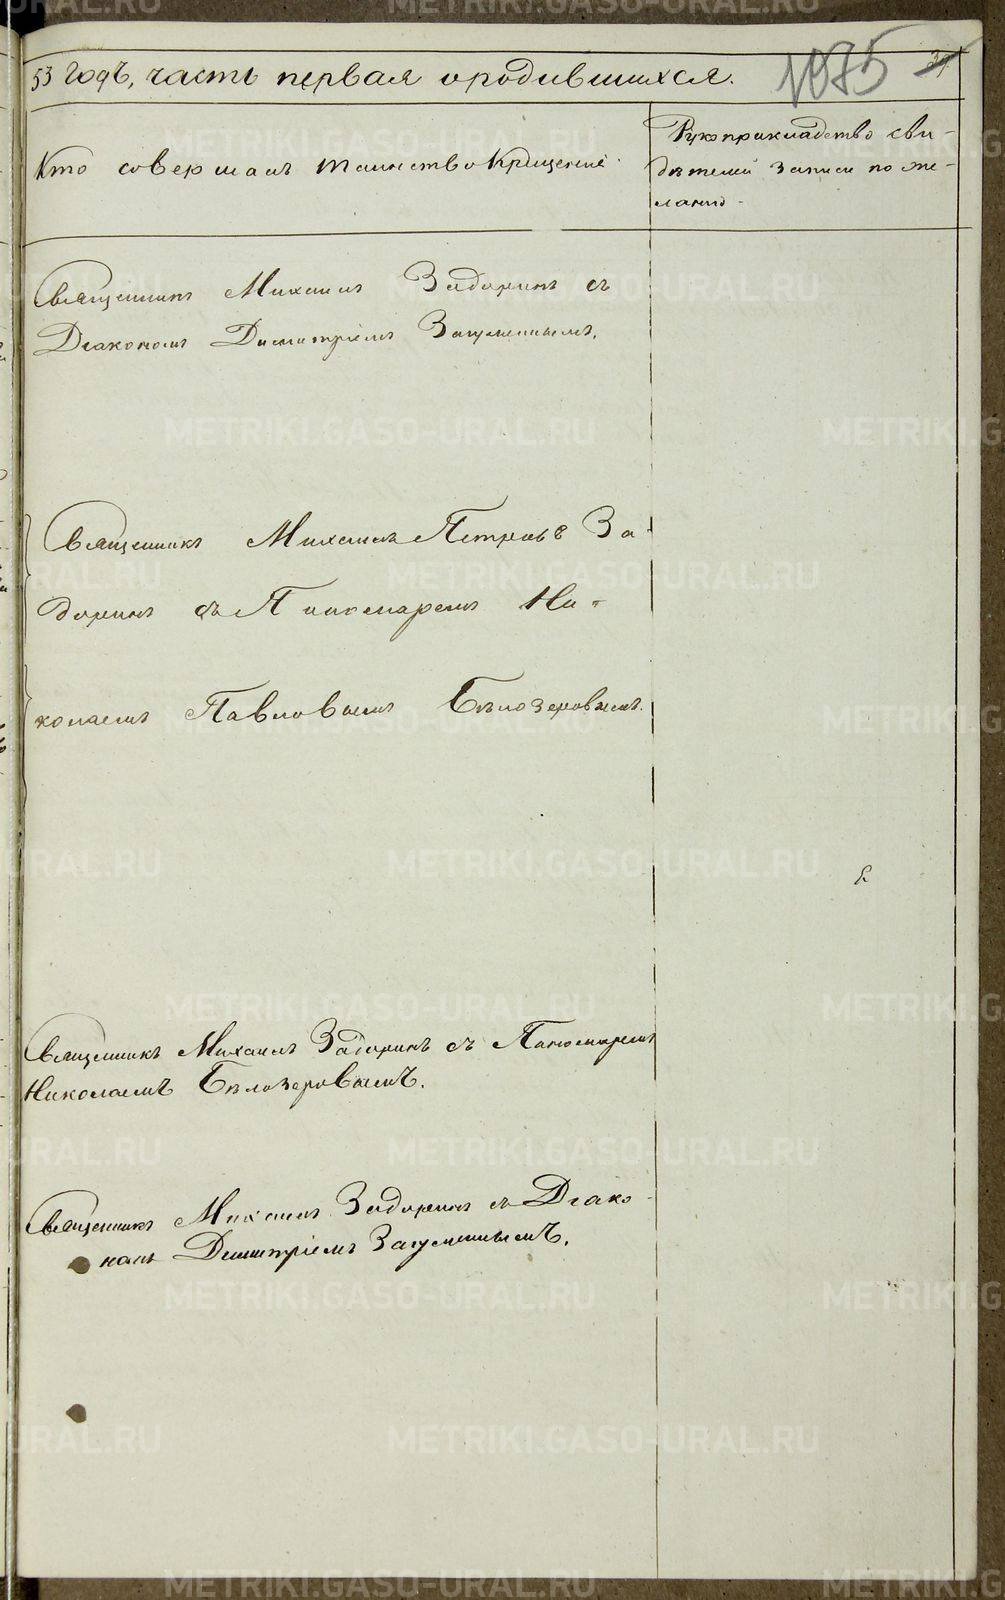 53 годъ, часть первая о родившихся.
1075
Кто совершалъ таинство Крещенiе
Рукоприкладство сви-
дѣтелей записи по же-
ланiю
Священникъ Михаилъ Задоринъ съ
Дiакономъ Димитрiемъ Загуменнымъ.
Священникъ Михаилъ Петровъ За-
доринъ съ Пономаремъ Ни-
колаемъ Павловымъ Бѣлозеровымъ.
Священникъ Михаилъ Задоринъ съ Пономаремъ
Николаемъ Бѣлозеровымъ.
Священникъ Михаилъ Задоринъ съ Дiако-
номъ Димитрiемъ Загуменнымъ.
METRIKI.GASO-URAL.RU